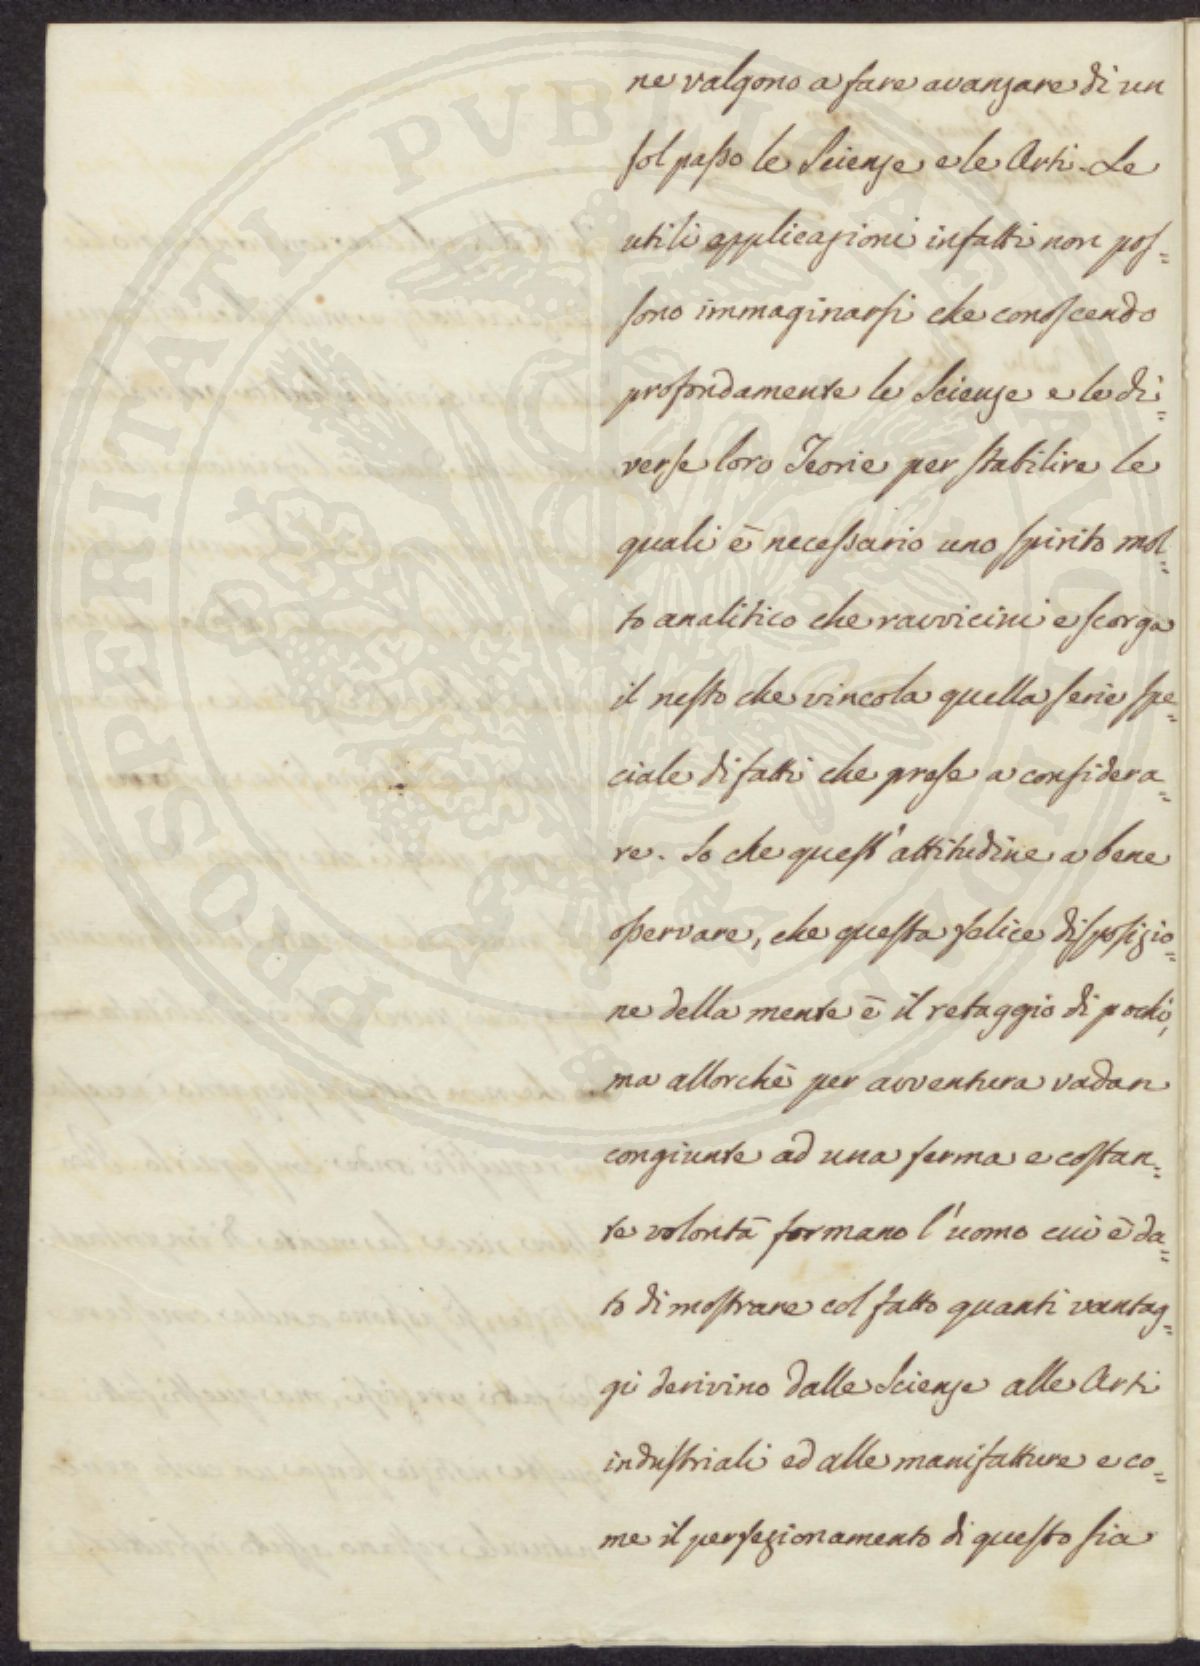 ne valgono a fare avanzare di un
sol passo le Scienze e le Arti. Le
utili applicazioni infatti non pos=
sono immaginarsi che conoscendo
profondamente le Scienze e le di=
verse loro Teorie per stabilire le
quali è necessario uno spirito mol=
to analitico che ravvicini e scorga
il nesso che vincola quella serie spe=
ciale di fatti che prese a considera=
re. So che quest'attitudine a bene
osservare, che questa felice disposizio=
ne della mente è il retaggio di pochi,
ma allorchè per avventura vadan
congiunte ad una ferma e costan=
te volontà formano l'uomo cui è da=
to di mostrare col fatto quanti vantag=
gi derivino dalle Scienze alle Arti
industriali ed alle manifatture e co=
me il perfezionamento di questo sia
PROSPERITATI PVBLICAE